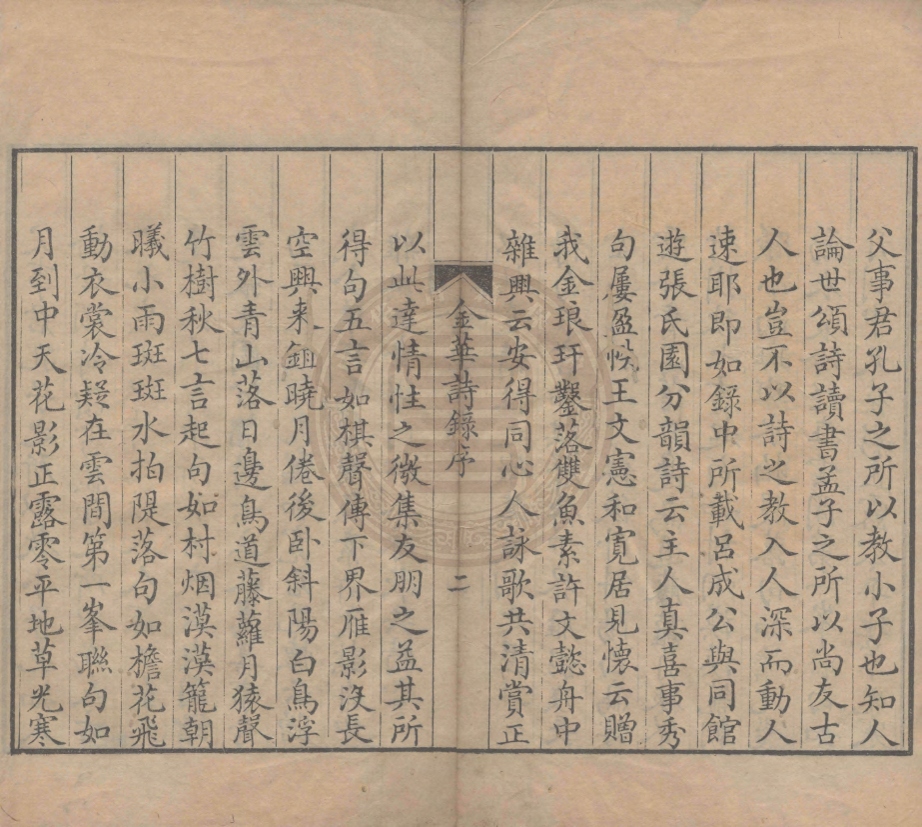 父事君孔子之所以教小子也知人
論世頌詩讀書孟子之所以尚友古
人也豈不以詩之教入人深而動人
速耶即如錄中所載呂成公與同館
遊張氏園分韻詩云主人真喜事秀
句屢盈帙王文憲和寛居見懷云贈
我金琅玕鑿落雙魚素許文懿舟中
雜興云安得同心人詠歌共清賞正
金華詩錄序
二
以此達情性之微集友朋之益其所
得句五言如棋聲傳下界雁影沒長
空興来鉏曉月倦後卧斜陽白鳥浮
雲外青山落日邊鳥道藤蘿月猿聲
竹樹秋七言起句如村烟漠漠籠朝
曦小雨斑斑水拍隄落句如檐花飛
動衣裳冷疑在雲間第一峯聯句如
月到中天花影正露零平地草光寒